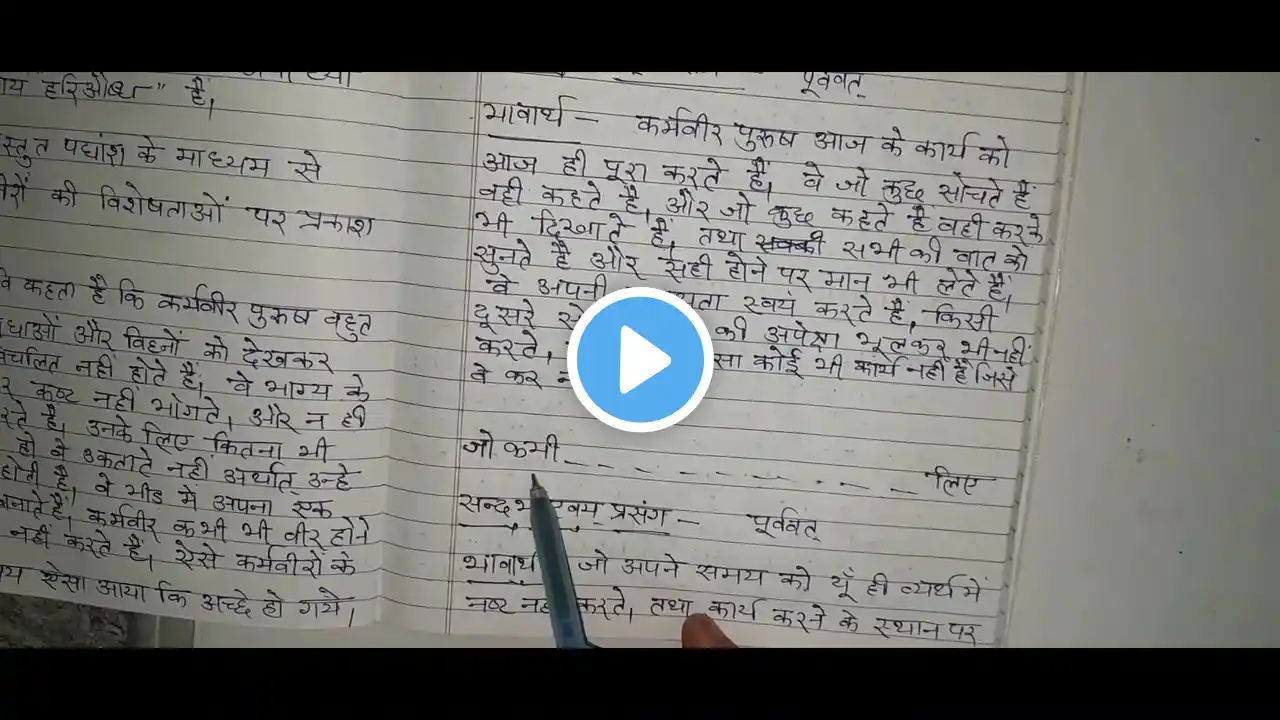 य हरिऔध" है।
स्तुत पद्यांश के माध्यम से
वीरों की विशेषताओं पर प्रकाश
कहता है कि कर्मवीर पुरुष बहुत
और विघ्नों को देखकर
विचलित नहीं होते हैं। वे भाग्य के
कष्ट नहीं भोगते, और न ही
उनके लिए कितना भी
हो वे उकताते नहीं अर्थात् उन्हे
होती है। वे भीड में अपना एक
बनाते हैं। कर्मवीर कभी भी वीर होने
नहीं करते हैं। ऐसे कर्मवीरों के
ऐसा आया कि अच्छे हो गये।
पूर्ववत्
भावार्थ - कर्मवीर पुरुष आज के कार्य को
आज ही पूरा करते हैं। वे जो कुछ सोचते हैं
वही कहते है, और जो कुछ कहते है वही करके
भी दिखाते हैं, तथा सभी की बात को
सुनते हैं और सही होने पर मान भी लेते हैं।
वे अपनी स्वयं करते है, किसी
दूसरे की अपेक्षा भूलकर भी नहीं
करते, कोई भी कार्य नहीं हैं जिसे
वे कर
जो कभी - - - - - - - - - लिए
सन्दर्भ एवम् प्रसंग - पूर्ववत्
भावार्थ जो अपने समय को यूँ ही व्यर्थ में
नष्ट नहीं करते, तथा कार्य करने के स्थान पर